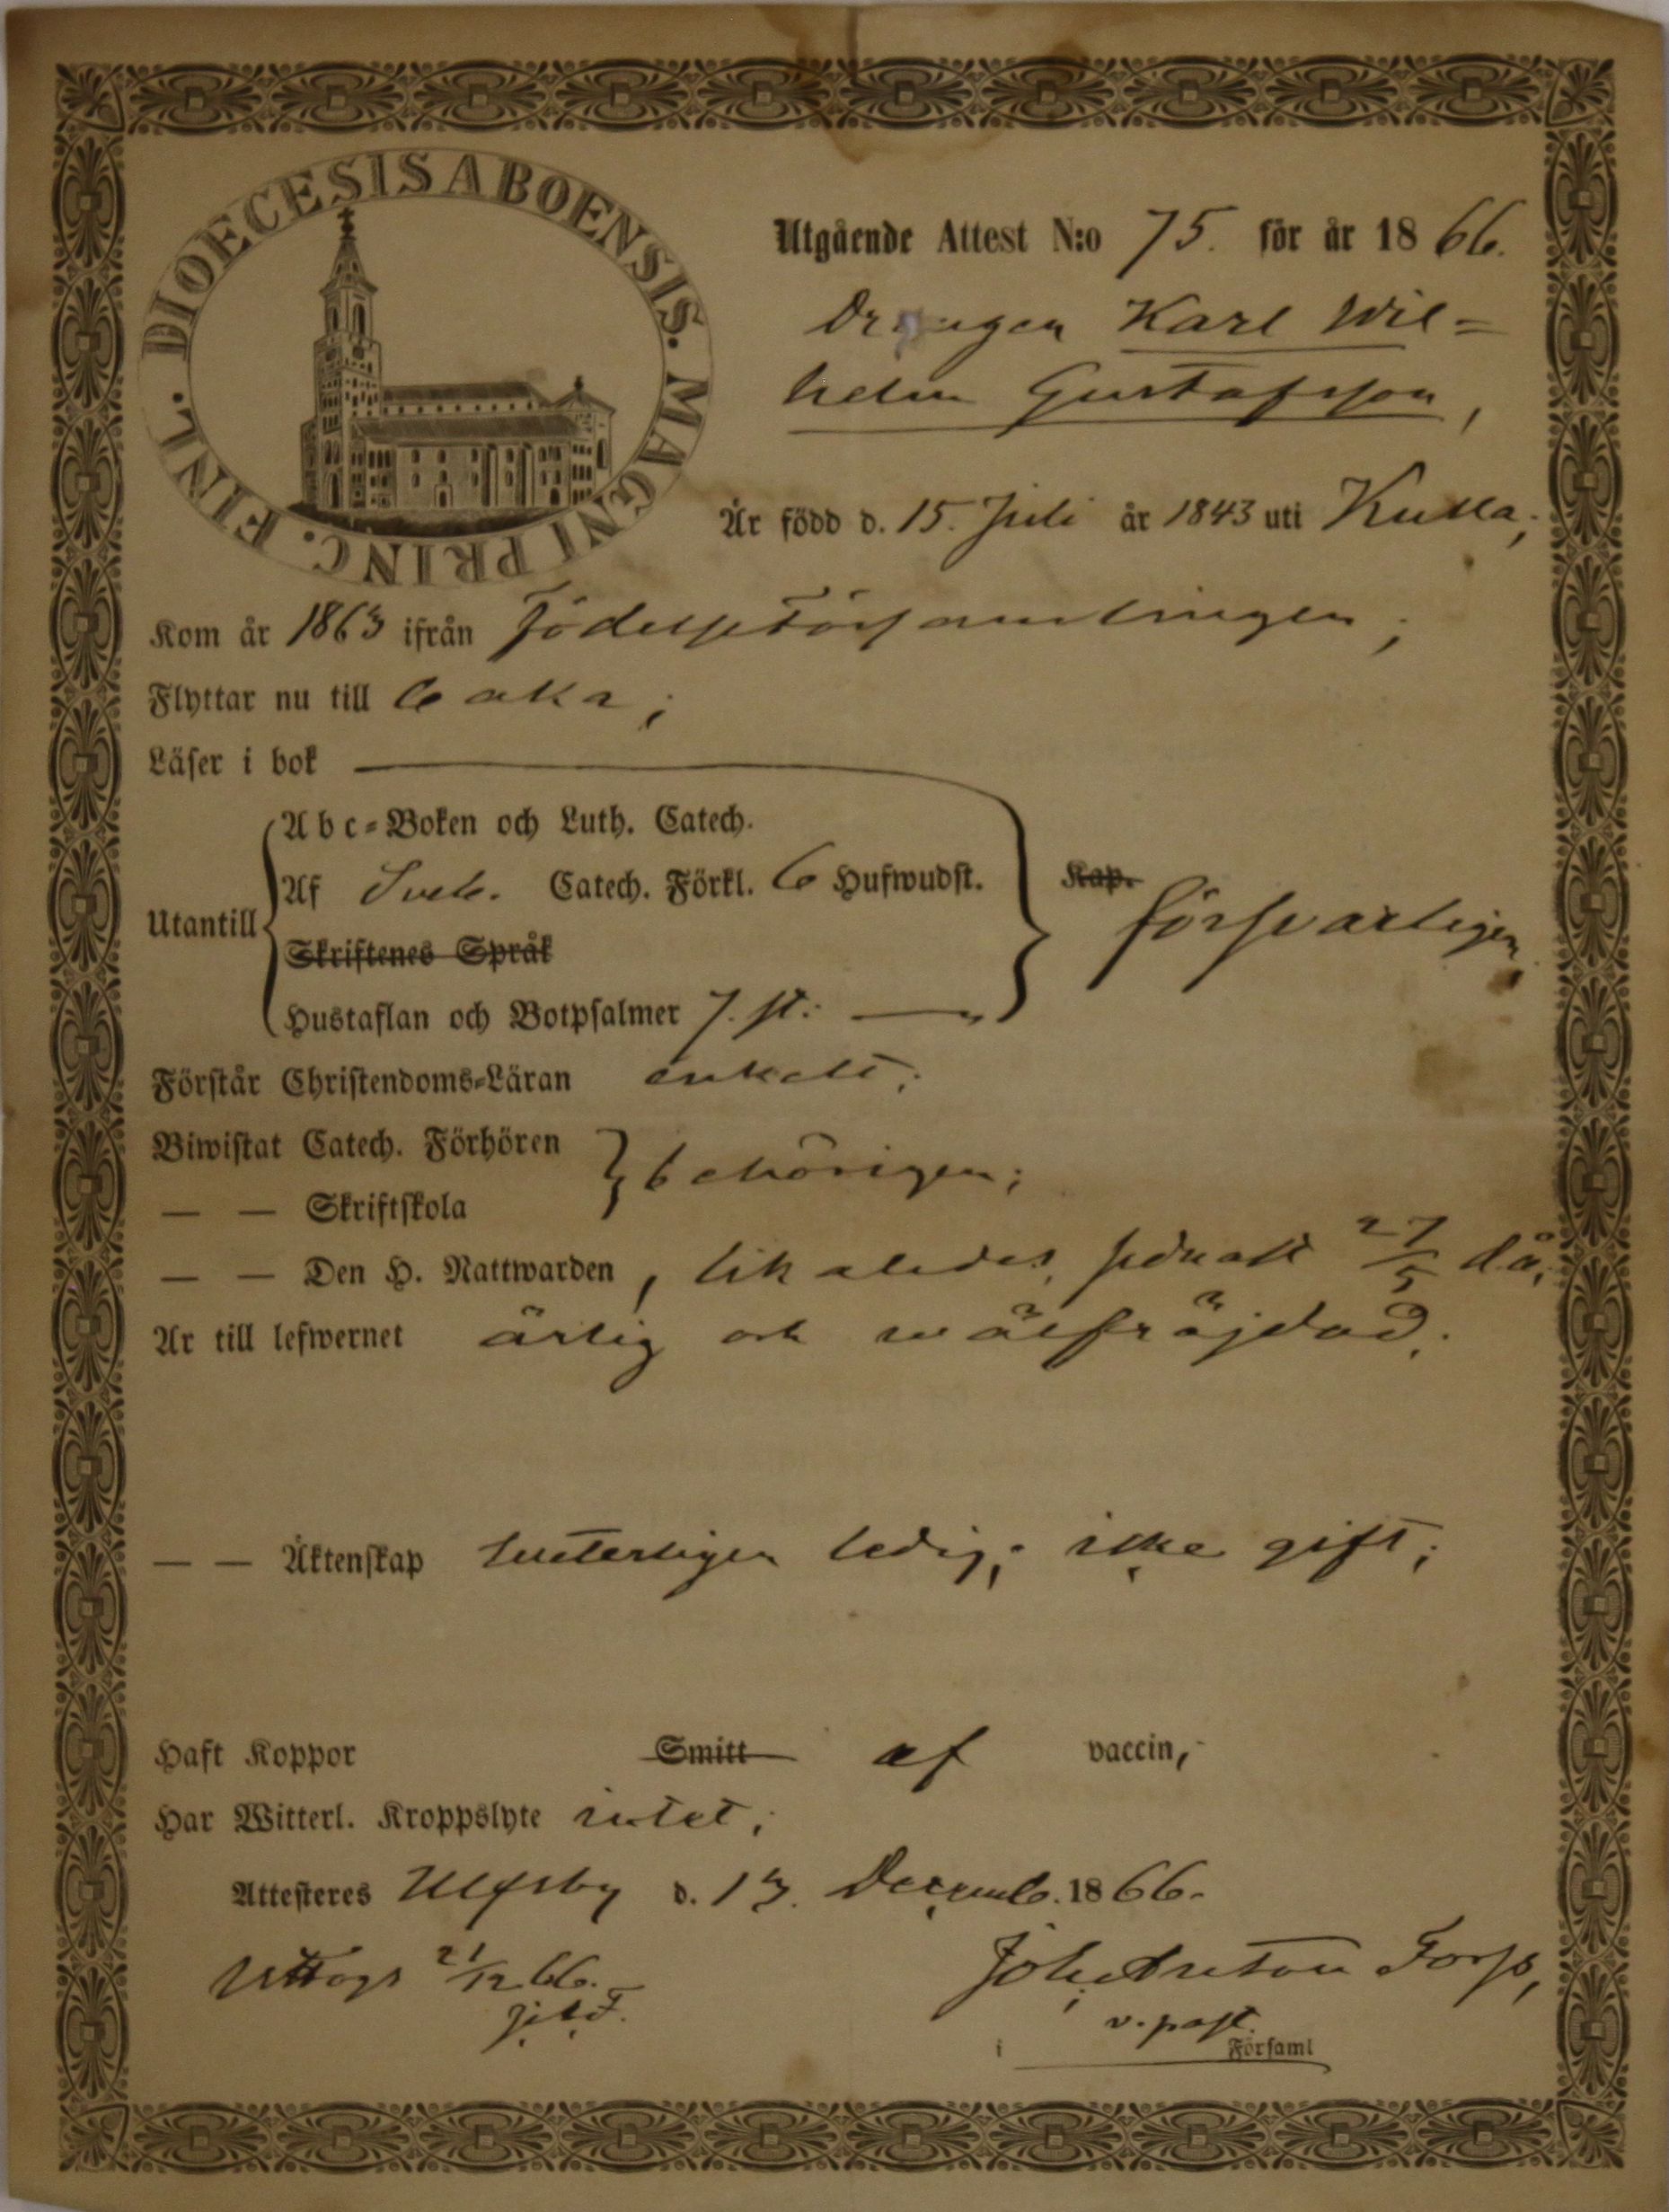 DIOECESIS ABOENSIS. MAGNI PRINC. FINL.
Utgående Attest N:o 75. för år 1866.
Drängen Karl Wil=
helm Gustafsson,
Är född d. 15. Juli år 1843 uti Kulla;
Kom år 1863 ifrån födelseförsamlingen;
Flyttar nu till
Läser i bok
Abc=Boken och Luth. Catech.
Af Sveb. Catech. Förkl. 6 Hufwudst.
Kap.
försvarligen,
Utantill
Skriftenes Språk
Hustaflan och Botpsalmer 7. st:
Förstår Christendoms=Läran enkelt;
Biwistat Catech. Förhören
behörigen;
— — Skriftskola
— — Den H. Nattwarden, likaledes, senast 27/5 d.å.
Är till lefwernet ärlig och wälfräjdad.
— — Äktenskap lediq; icke gift;
Haft Koppor Smitt af vaccin,
Har Witterl. Kroppslyte intet;
Attesteres Ulfsby d. 13. Decemb. 1866.
Uttogs 21/12 66.
Joh. Anton Forss,
v. past.
i Församl